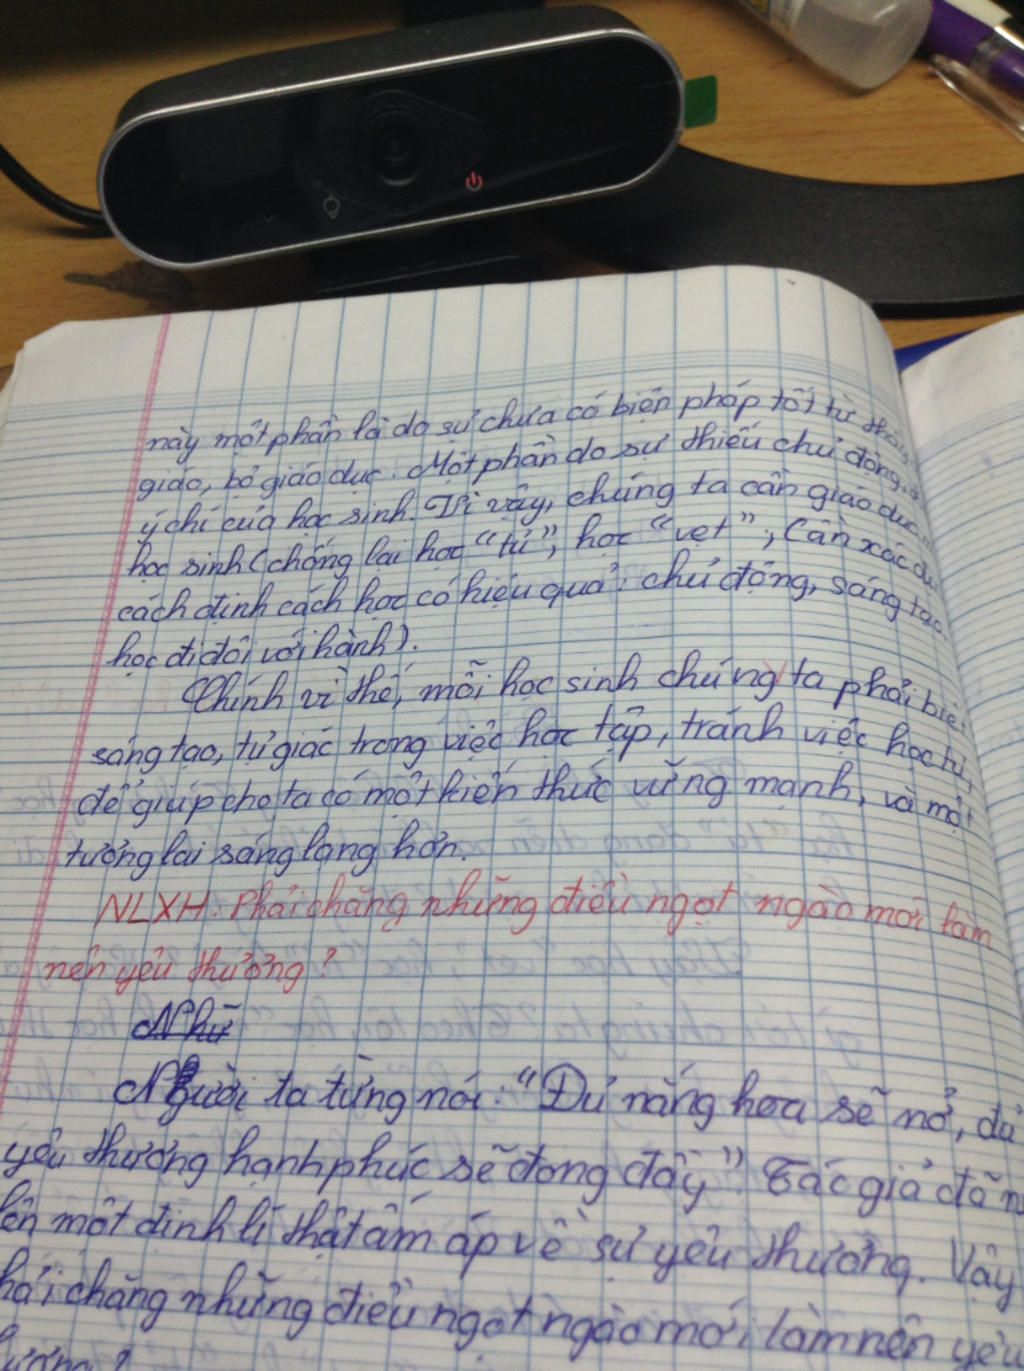 này một phần là do sự chưa có biện pháp tốt từ thầy
giáo, bộ giáo dục. Một phần do sự thiếu chủ động,
ý chí của học sinh. Vì vậy, chúng ta cần giáo dục
học sinh (chống lại học "tủ", học "vẹt"; Cần xác
cách định cách học có hiệu quả: chủ động, sáng tạo
học đi đôi với hành).
Chính vì thế, mỗi học sinh chúng ta phải biết
sáng tạo, tự giác trong việc học tập, tránh việc học tủ,
để giúp cho ta có một kiến thức vững mạnh, và một
tương lai sáng lạng hơn.
NLXH: Phải chăng những điều ngọt ngào mới làm
nên yêu thương?
Như
Người ta từng nói: "Đủ nắng hoa sẽ nở, đủ
yêu thương hạnh phúc sẽ đong đầy" Tác giả đã
lên một định lí thật ấm áp về sự yêu thương. Vậy
phải chăng những điều ngọt ngào mới làm nên yêu
thương?